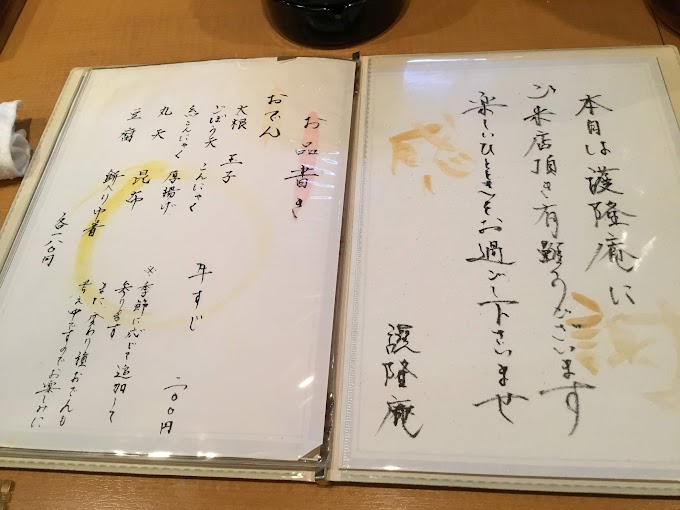 本日は護隆庵に
ご来店頂き有難うございます
楽しいひとときをお過ごし下さいませ
護隆庵
感
謝
お品書き
おでん
大根 玉子
ごぼう天 こんにゃく
糸こんにゃく 厚揚げ
丸天 昆布
豆腐 餅入り巾着
各一八〇円
牛すじ 二〇〇円
※季節に応じて追加して
参ります
また、変わり種おでんも
考え中ですのでお楽しみに